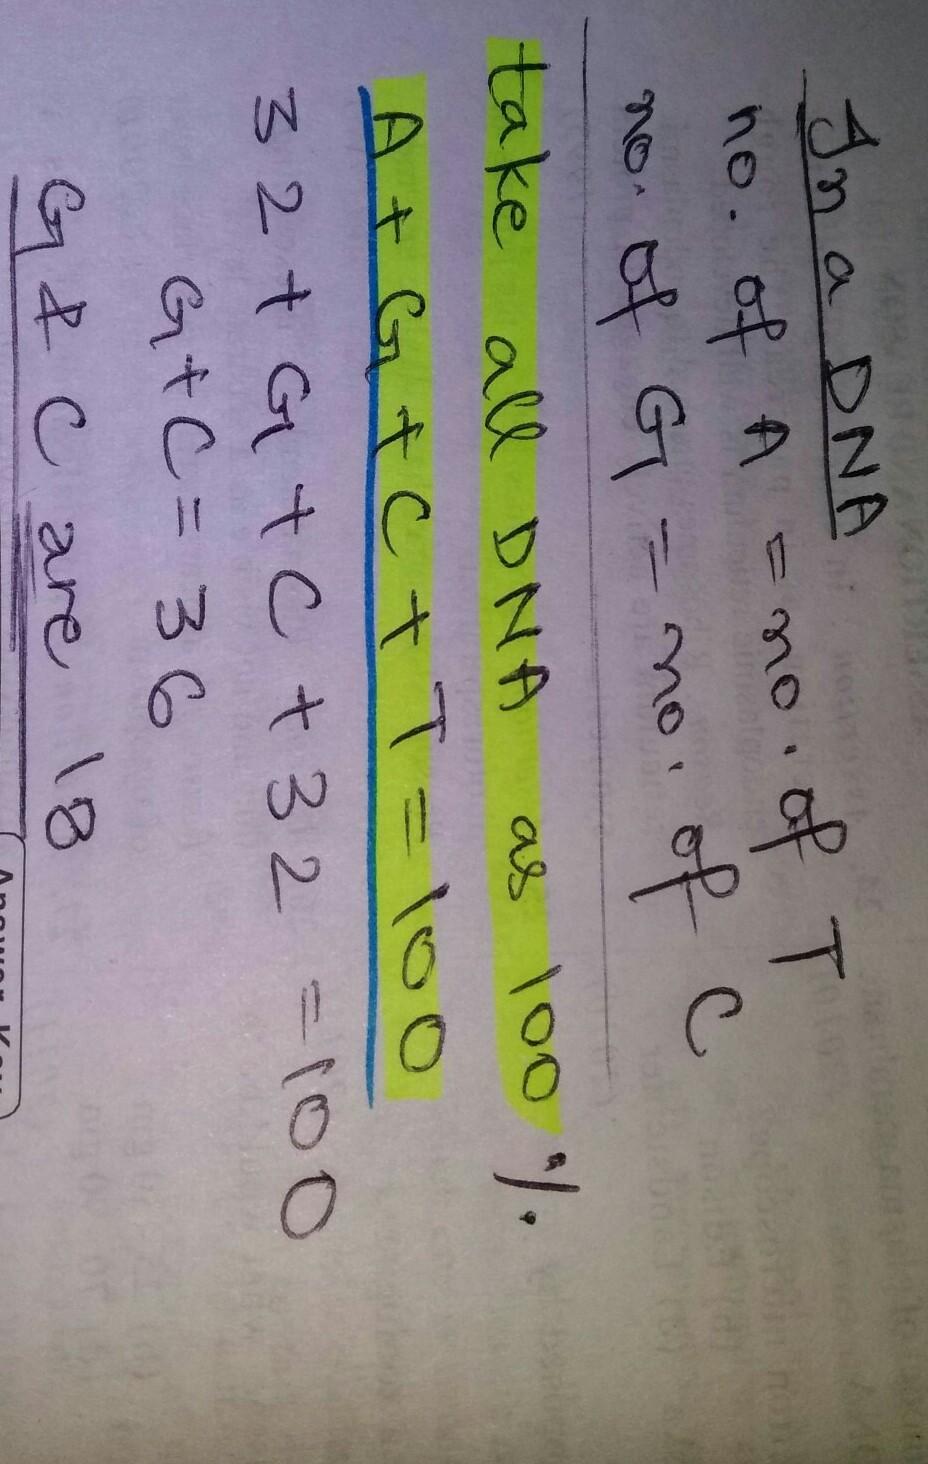 In a DNA
no. of A = no. of T
no. of G = no. of C
take all DNA as 100 %.
A + G + C + T = 100
32 + G + C + 32 = 100
G + C = 36
G & C are 18
Answer Key